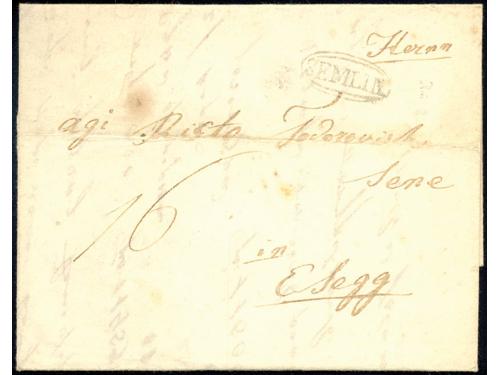 Herrn
SEMLIN.
agi Risto Todorovich
Sene
16
in
Esegg